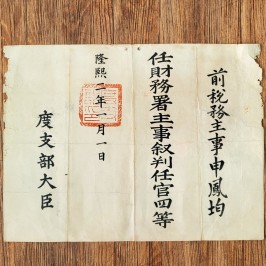 前稅務主事申鳳均
任財務署主事叙判任官四等
隆熙二年一月一日
度支部大臣